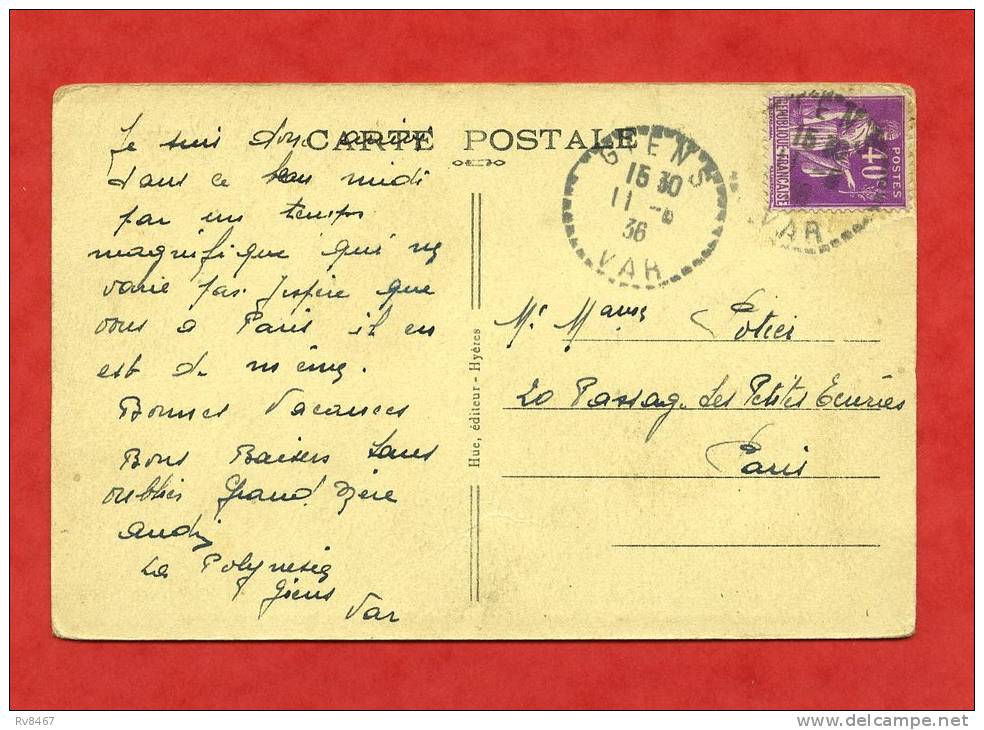 CARTE POSTALE
Je suis donc
dans ce beau midi
par un temps
magnifique qui ne
varie pas J'espère que
vous a Paris il en
est de même.
Bonnes Vacances
Bons Baisers Sans
oublier Grand Mère
La Polynésie
Giens
Var
Hue, éditeur - Hyères
GIENS
15 30
11
36
VAR
REPUBLIQUE FRANÇAISE
POSTES
40
VAR
Potier
20 Passage Les Petites Ecuries
Paris
Rv8467
www.delcampe.net